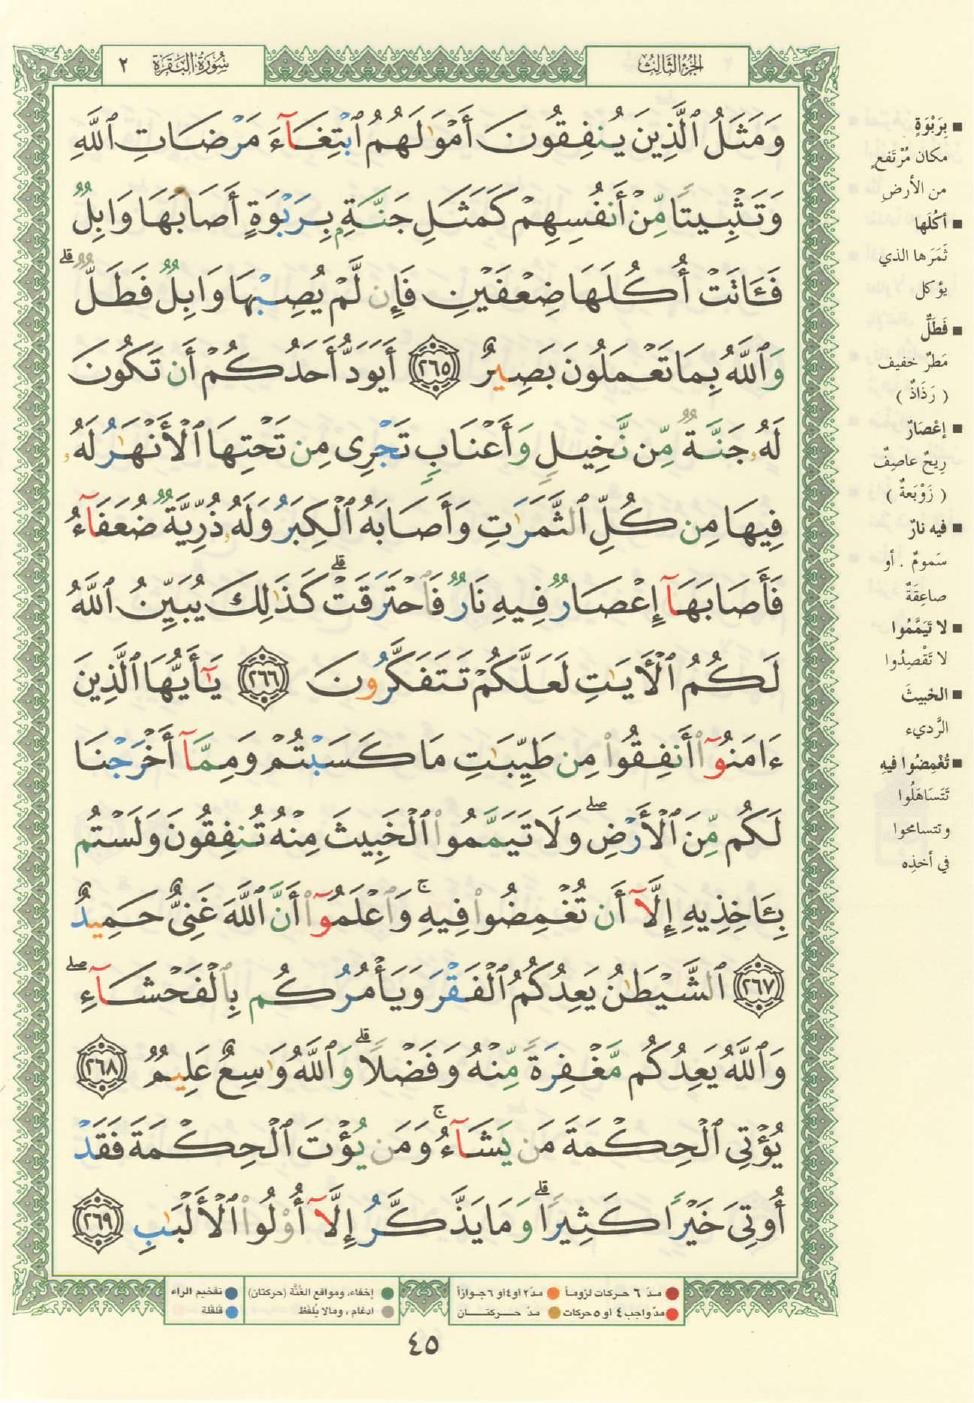 الجزء الثالث
سورة البقرة ٢
وَمَثَلُ ٱلَّذِينَ يُنفِقُونَ أَمْوَٰلَهُمُ ٱبْتِغَآءَ مَرْضَاتِ ٱللَّهِ
وَتَثْبِيتًا مِّنْ أَنفُسِهِمْ كَمَثَلِ جَنَّةٍۭ بِرَبْوَةٍ أَصَابَهَا وَابِلٌ
فَـَٔاتَتْ أُكُلَهَا ضِعْفَيْنِ فَإِن لَّمْ يُصِبْهَا وَابِلٌ فَطَلٌّ ۗ
وَٱللَّهُ بِمَا تَعْمَلُونَ بَصِيرٌ ٢٦٥ أَيَوَدُّ أَحَدُكُمْ أَن تَكُونَ
لَهُۥ جَنَّةٌ مِّن نَّخِيلٍ وَأَعْنَابٍ تَجْرِى مِن تَحْتِهَا ٱلْأَنْهَٰرُ لَهُۥ
فِيهَا مِن كُلِّ ٱلثَّمَرَٰتِ وَأَصَابَهُ ٱلْكِبَرُ وَلَهُۥ ذُرِّيَّةٌ ضُعَفَآءُ
فَأَصَابَهَآ إِعْصَارٌ فِيهِ نَارٌ فَٱحْتَرَقَتْ ۗ كَذَٰلِكَ يُبَيِّنُ ٱللَّهُ
لَكُمُ ٱلْأَيَٰتِ لَعَلَّكُمْ تَتَفَكَّرُونَ ٢٦٦ يَٰٓأَيُّهَا ٱلَّذِينَ
ءَامَنُوٓا۟ أَنفِقُوا۟ مِن طَيِّبَٰتِ مَا كَسَبْتُمْ وَمِمَّآ أَخْرَجْنَا
لَكُم مِّنَ ٱلْأَرْضِ ۖ وَلَا تَيَمَّمُوا۟ ٱلْخَبِيثَ مِنْهُ تُنفِقُونَ وَلَسْتُم
بِـَٔاخِذِيهِ إِلَّآ أَن تُغْمِضُوا۟ فِيهِ ۚ وَٱعْلَمُوٓا۟ أَنَّ ٱللَّهَ غَنِىٌّ حَمِيدٌ
٢٦٧ ٱلشَّيْطَٰنُ يَعِدُكُمُ ٱلْفَقْرَ وَيَأْمُرُكُم بِٱلْفَحْشَآءِ ۖ
وَٱللَّهُ يَعِدُكُم مَّغْفِرَةً مِّنْهُ وَفَضْلًا ۗ وَٱللَّهُ وَٰسِعٌ عَلِيمٌ ٢٦٨
يُؤْتِى ٱلْحِكْمَةَ مَن يَشَآءُ ۚ وَمَن يُؤْتَ ٱلْحِكْمَةَ فَقَدْ
أُوتِىَ خَيْرًا كَثِيرًا ۗ وَمَا يَذَّكَّرُ إِلَّآ أُو۟لُوا۟ ٱلْأَلْبَٰبِ ٢٦٩
■ بِرَبْوَةٍ
مكان مُرْتَفعٍ
من الأرضِ
■ أكُلَها
ثَمَرَها الذي
يؤكل
■ فَطَلٌّ
مَطرٌ خفيف
( رَذَاذٌ )
■ إعْصَارٌ
رِيحٌ عاصِفٌ
( زَوْبَعةٌ )
■ فيه نارٌ
سَمومٌ . أو
صاعِقةٌ
■ لا تَيَمَّمُوا
لا تَقْصِدُوا
■ الخبيثَ
الرَّديء
■ تُغْمِضُوا فيهِ
تَتَسَاهَلُوا
وتتسامحوا
في أخذِه
مدّ ٦ حركات لزوماً
مدّ ٢ او ٤ او ٦ جوازاً
إخفاء، ومواقع الغُنَّة (حركتان)
تفخيم الراء
مدّ واجب ٤ او ٥ حركات
مدّ حركتان
ادغام ، ومالا يُلفَظ
قلقلة
٤٥